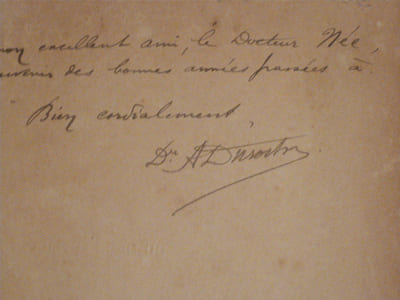 mon excellent ami, le Docteur Née,
souvenir des bonnes années passées à
Bien cordialement,
Dr. A